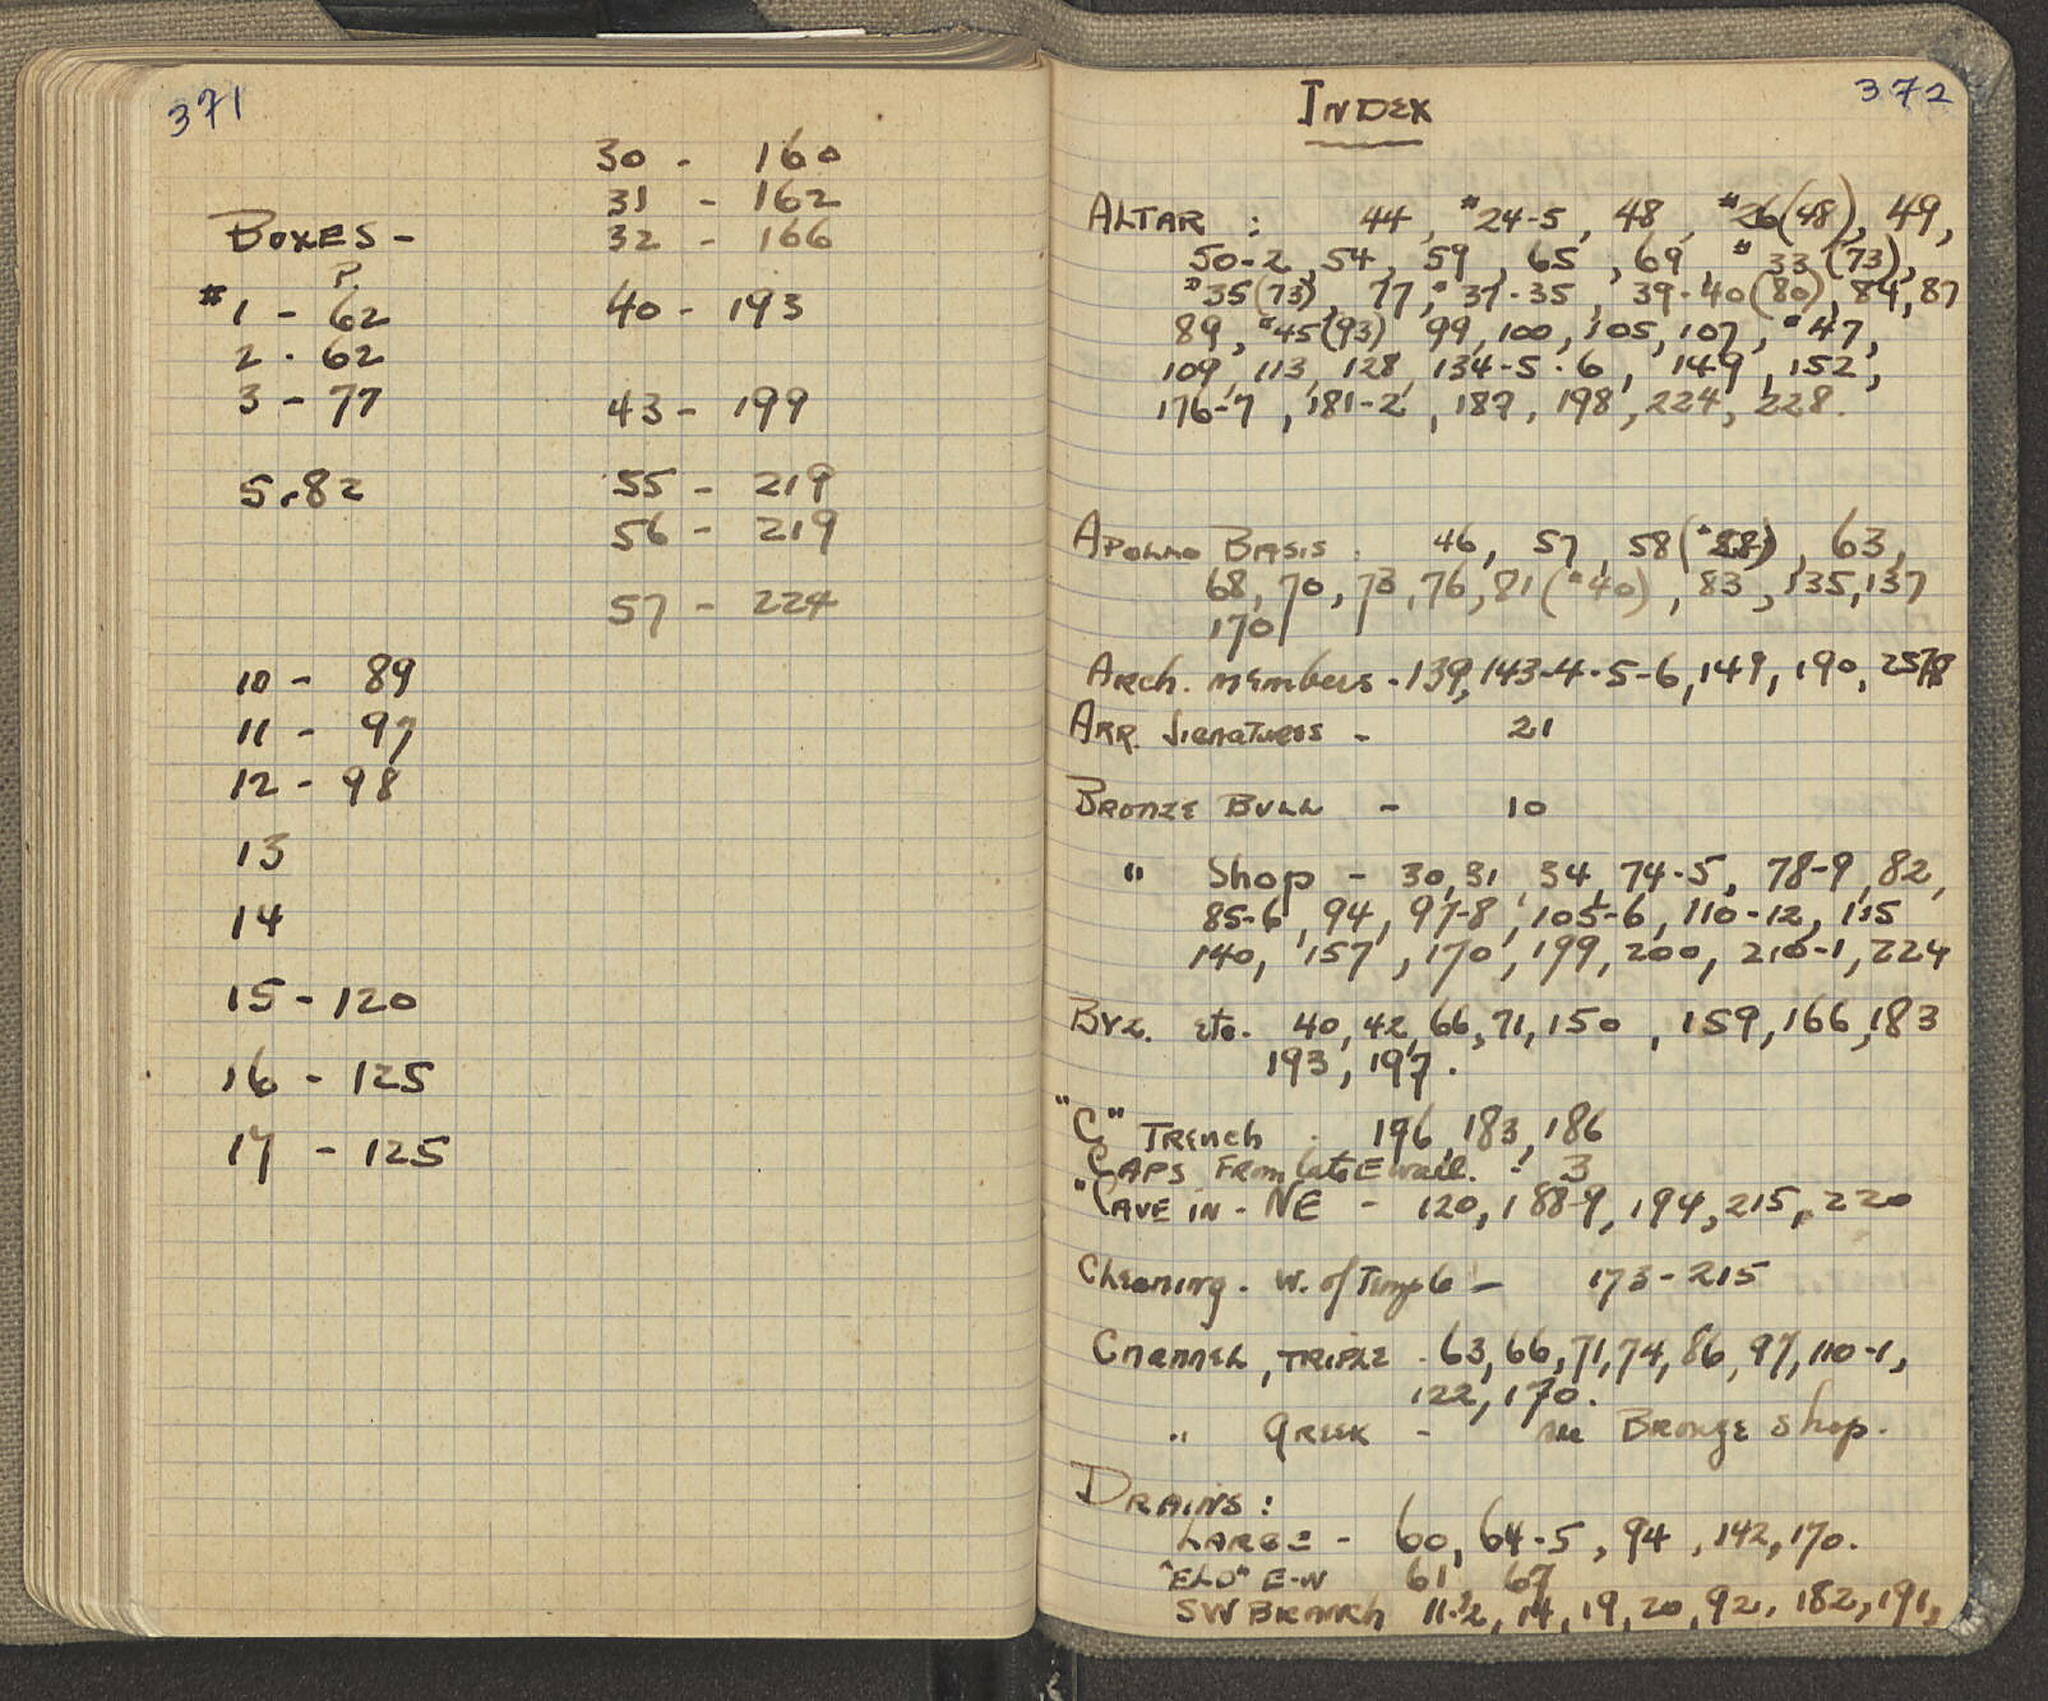 371
BOXES -
P.
#1 - 62
2 - 62
3 - 77
5 . 82
10 - 89
11 - 97
12 - 98
13
14
15 - 120
16 - 125
17 - 125
30 - 160
31 - 162
32 - 166
40 - 193
43 - 199
55 - 219
56 - 219
57 - 224
372
INDEX
ALTAR : 44, #24-5, 48, #26(48), 49,
50-2, 54, 59, 65, 69, #33 (73),
#35(73), 77, #37-35, 39-40(80), 84, 87
89, #45(93) 99, 100, 105, 107, #47,
109, 113, 128, 134-5-6, 149, 152,
176-7, 181-2, 187, 198, 224, 228.
APOLLO BASIS : 46, 57, 58 (#28), 63,
68, 70, 73, 76, 81 (#40), 83, 135, 137
170
ARCH. MEMBERS - 139, 143-4-5-6, 149, 190,
ARR. SIGNATURES - 21
BRONZE BULL - 10
" Shop - 30, 31, 34, 74-5, 78-9, 82,
85-6, 94, 97-8, 105-6, 110-12, 115
140, 157, 170, 199, 200, 210-1, 224
BYZ. etc. 40, 42, 66, 71, 150, 159, 166, 183
193, 197.
"C" TRENCH . 196, 183, 186
CAPS FROM late E wall. : 3
"CAVE IN - NE - 120, 188-9, 194, 215, 220
Cleaning - W. of Temple - 173-215
CHANNEL, TRIPLE . 63, 66, 71, 74, 86, 97, 110-1,
122, 170.
" GREEK - see Bronze Shop.
DRAINS :
LARGE - 60, 64-5, 94, 142, 170.
E-W 61, 67
SW BRANCH 11-12, 14, 19, 20, 92, 182, 191,